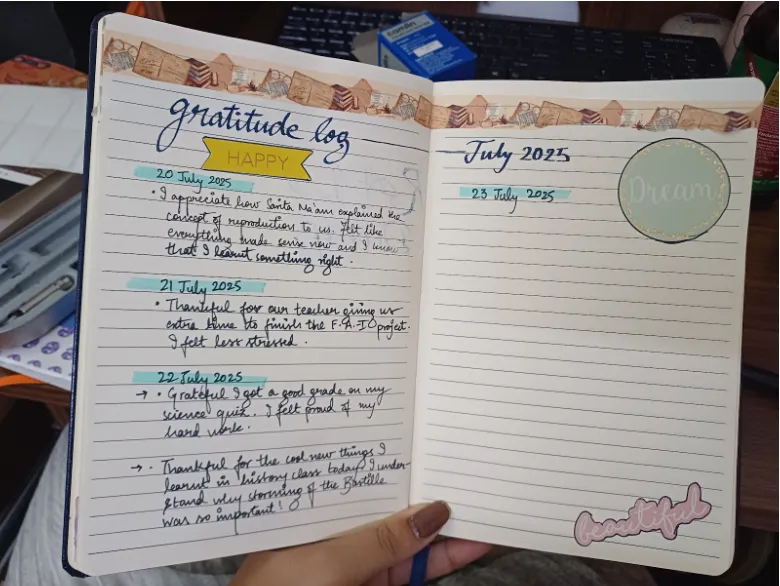 gratitude log
HAPPY
20 July 2025
• I appreciate how Santa Ma'am explained the
concept of reproduction to us. Felt like
everything made sense now and I know
that I learnt something right.
21 July 2025
• Thankful for our teacher giving us
extra time to finish the F.A.I project.
I felt less stressed.
22 July 2025
→ • Grateful I got a good grade on my
science quiz. I felt proud of my
hard work.
→ • Thankful for the cool new things I
learnt in history class today. I under-
stand why storming of the Bastille
was so important!
July 2025
23 July 2025
Dream
beautiful